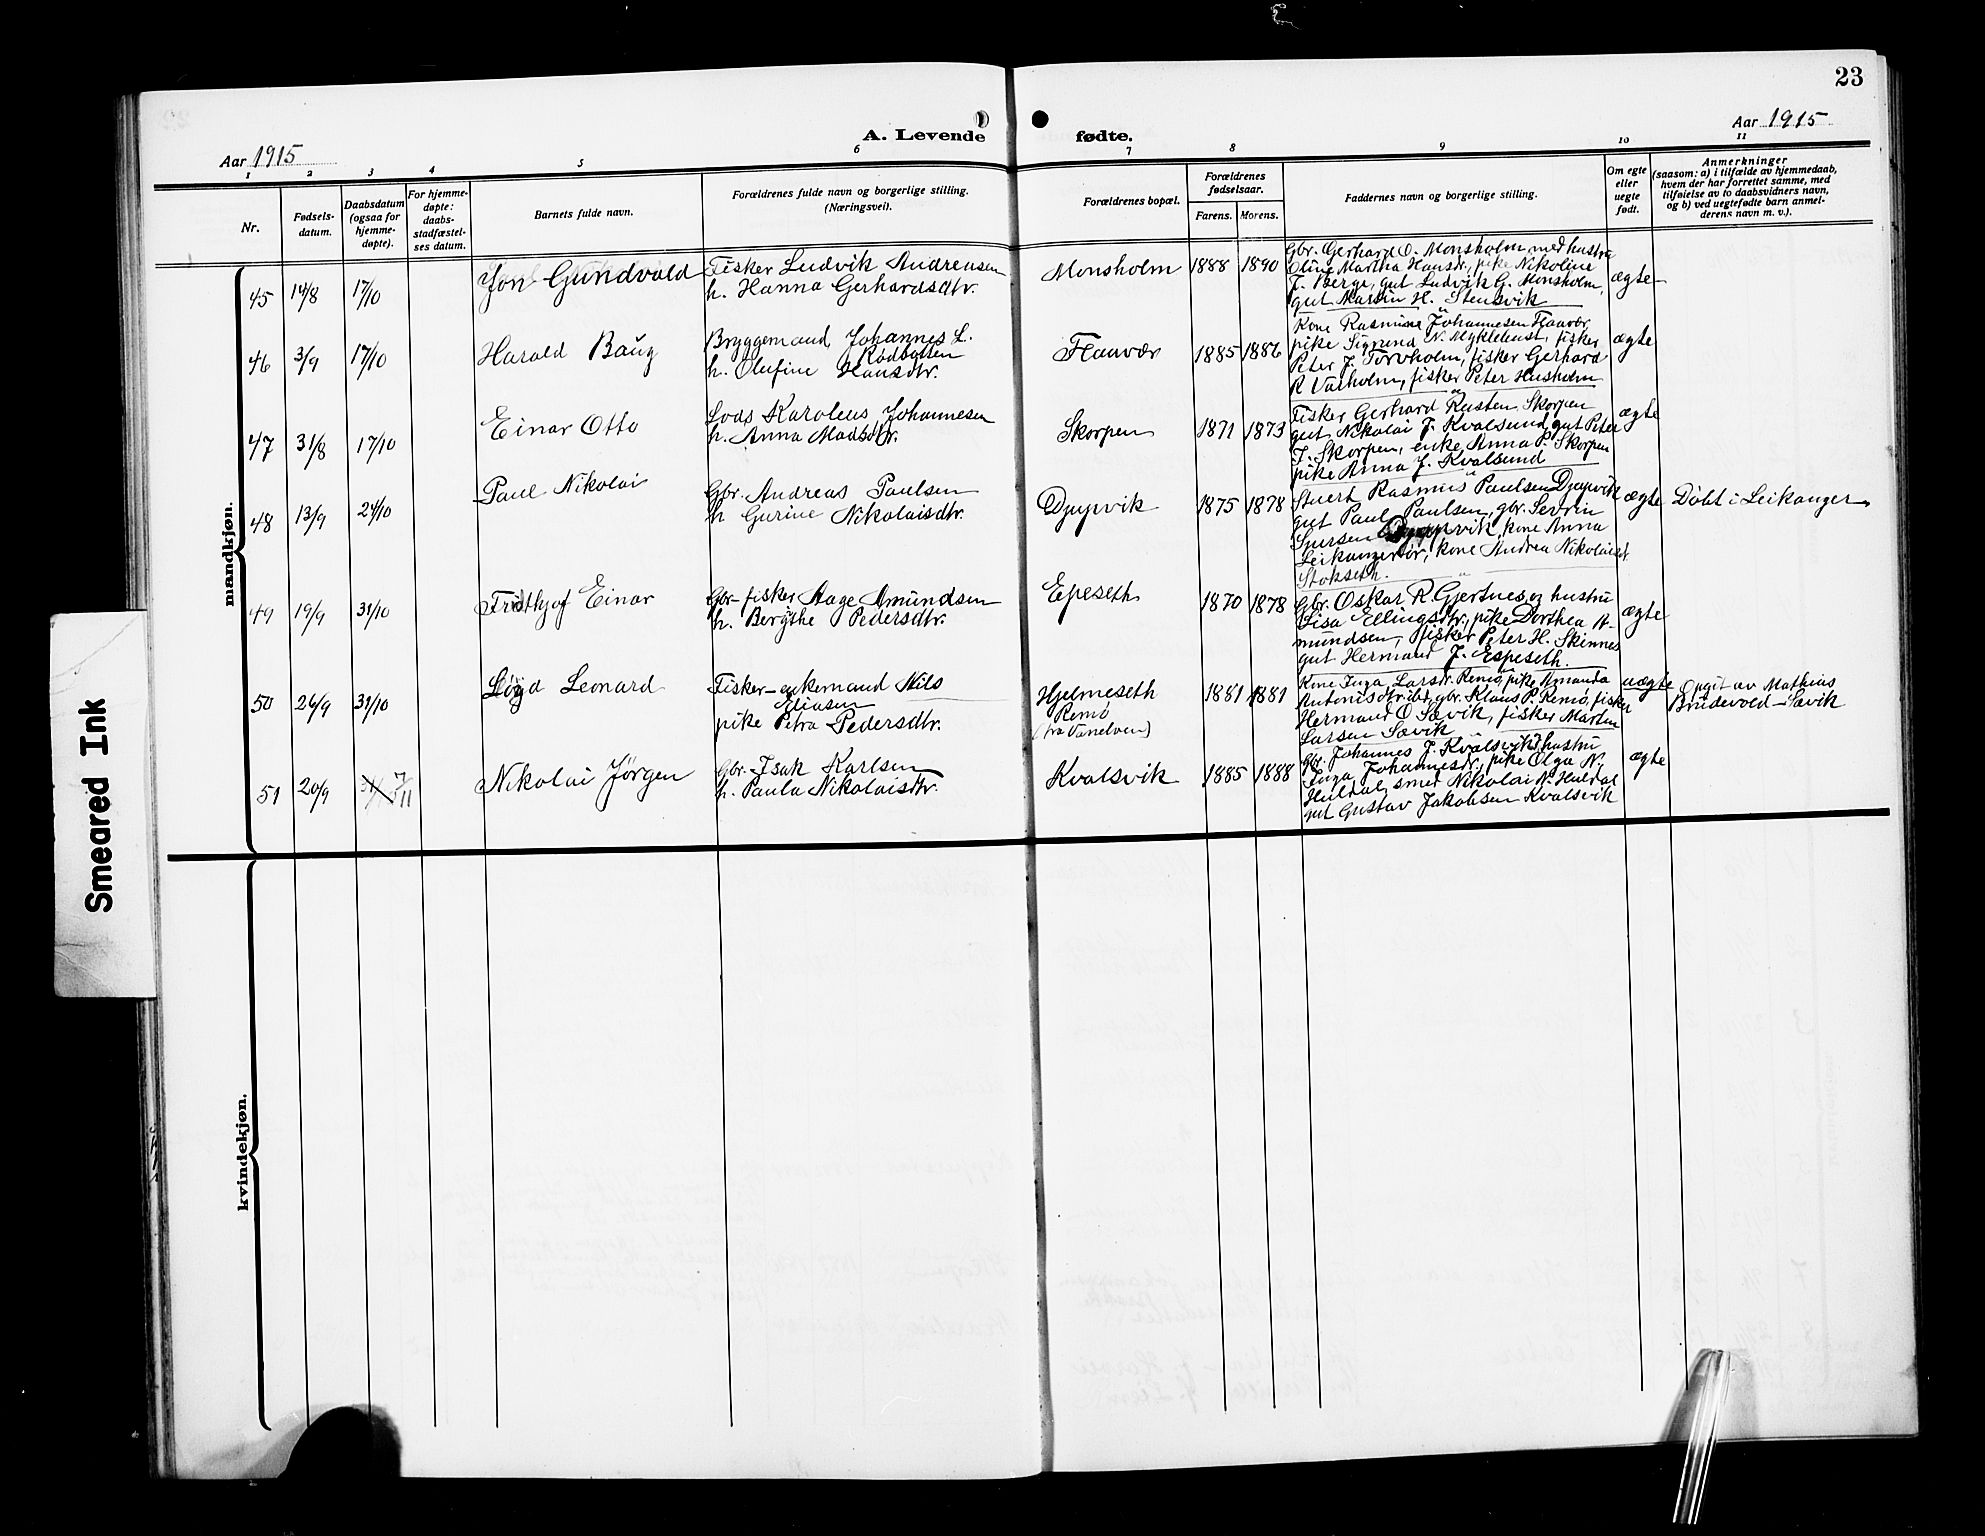 23
A. Levende fødte.
Aar 1915
Aar 1915
1 2 3 4 5 6 7 8 9 10 11
Nr.
Fødsels-
datum.
Daabsdatum
(ogsaa for
hjemme-
døpte).
For hjemme-
døpte:
daabs-
stadfæstel-
ses datum.
Barnets fulde navn.
Forældrenes fulde navn og borgerlige stilling.
(Næringsvei).
Forældrenes bopæl.
Forældrenes
fødselsaar.
Farens. Morens.
Faddernes navn og borgerlige stilling.
Om egte
eller
uegte
født.
Anmerkninger
(saasom: a) i tilfælde av hjemmedaab,
hvem der har forrettet samme, med
tilføielse av to daabsvidners navn,
og b) ved uegtefødte barn anmel-
derens navn m. v.).
mandkjøn.
45 14/8 17/10
Jon Gundvald
Fisker Ludvik Andreasen
h. Hanna Gerhardsdtr.
Monsholm
1888 1890
Gbr. Gerhard O. Monsholm med hustru
Oline Martha Hansdtr., pike Nikoline
J. Berge, gut Ludvik G. Monsholm,
gut Martin H. Stensvik
ægte
46 3/9 17/10
Harald Baug
Bryggemand Johannes L.
Rødbotten
h. Olufine Hansdtr.
Flaavær
1885 1886
Kone Rasmine Johannesen Flaavær
pike Sigrund N. Myklebust, fisker
Peter J. Torvholm, fisker Gerhard
R Varholm, fisker Peter Husholm
ægte
47 31/8 17/10
Einar Otto
Lods Karoleus Johannesen
h. Anna Madsdtr.
Skorpen
1871 1873
Fisker Gerhard Rusten Skorpen
gut Nikolai J. Kvalsund, gut Peter
J. Skorpen, enke Anna P. Skorpen
pike Anna J. Kvalsund
ægte
48 13/9 24/10
Paul Nikolai
Gbr. Andreas Paulsen
h Gurine Nikolaisdtr.
Djupvik
1875 1878
Stuert Rasmus Paulsen Djupvik
gut Paul Paulsen, gbr. Sevrin
Sjursen Djupvik, kone Anna
Leikanger, kone Andrea Nikolaisd.
Stokseth.
ægte
Döbt i Leikanger
49 19/9 31/10
Fridthjof Einar
Gbr-fisker Aage Amundsen
h. Berythe Pedersdtr.
Epeseth
1870 1878
Gbr. Oskar R. Gjertnes og hustru
Lisa Ellingsdtr., pike Dorthea A-
mundsen, fisker Peter H. Skinnes
gut Hermand J. Espeseth.
ægte
50 26/9 31/10
Leonard
Fisker-enkemand Nils
Eliasen
pike Petra Pedersdtr.
Hjelmeseth
Remö
1881 1881
Kone Inga Larsdr. Remö, pike Amanda
gbr. Klaus P. Remö, fisker
Hermand O Sævik, fisker Martin
Larsen Sævik
uægte
Opgit av Mathias
Brudevold - Sævik
51 20/9 31/10 7/11
Nikolai Jørgen
Gbr. Isak Karlsen
h. Paula Nikolaisdtr.
Kvalsvik
1885 1888
Gbr. Johannes J. Kvalsvik, hustru
Inga Johannesdtr., pike Olga N.
Huldal, smed Nikolai N. Huldal
gut Gustav Jakobsen Kvalsvik
ægte
kvindekjøn.
Smeared Ink